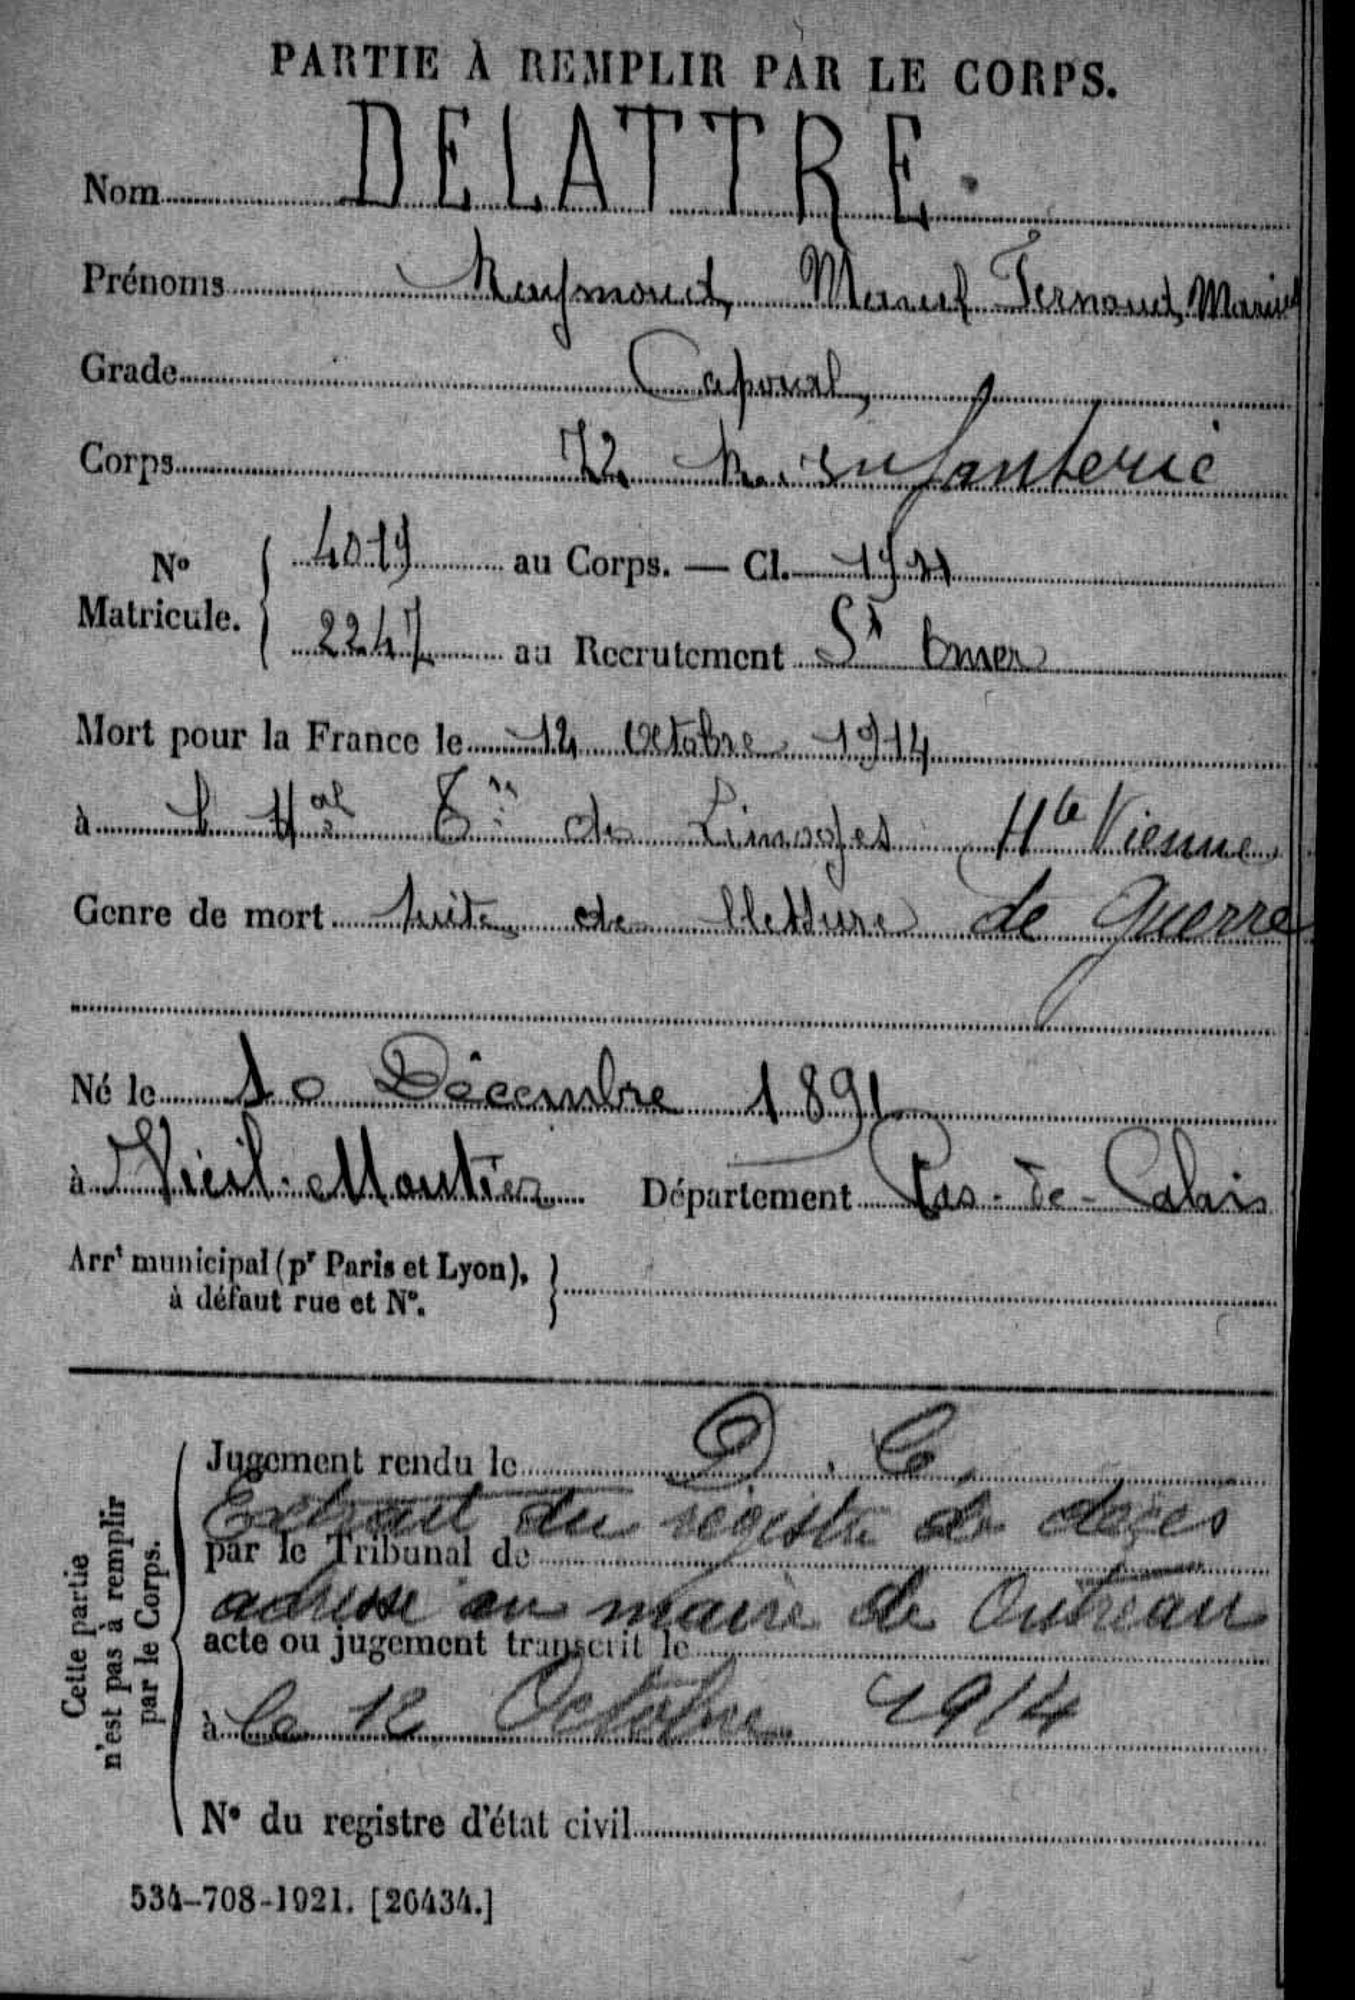 PARTIE À REMPLIR PAR LE CORPS.
Nom DELATTRE.
Prénoms Raymond, Marcel Fernand, Marius
Grade Caporal,
Corps 72 R. Infanterie
No Matricule. { 4019 au Corps. — Cl. 1911
2247 au Recrutement St Omer
Mort pour la France le 12 Octobre 1914
à l' Hal de Limoges Hte Vienne
Genre de mort suite de blessure de guerre
Né le 10 Décembre 1891
à Vieil-Moutier Département Pas-de-Calais
Arrt municipal (pr Paris et Lyon), à défaut rue et No. }
Cette partie n'est pas à remplir par le Corps.
Jugement rendu le D. C.
Extrait du registre de décès
par le Tribunal de
adressé au maire de Outreau
acte ou jugement transcrit le
à le 12 Octobre 1914
No du registre d'état civil
534-708-1921. [26434.]